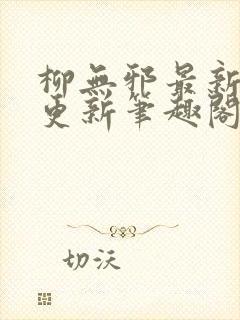 柳無邪最新
更新筆趣閣
切沃